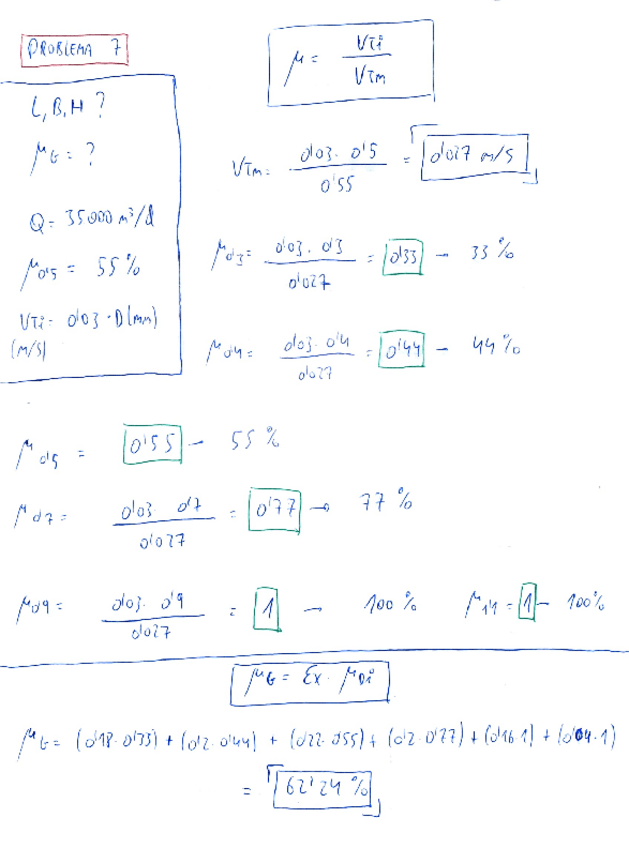 PROBLEMA 7
μ = VTi / VTm
L, B, H ?
μG = ?
Q = 35000 m³/d
μ0'5 = 55 %
VTi = 0'03 · D (mm)
(m/s)
VTm = 0'03 · 0'5 / 0'55 = 0'027 m/s
μ0'3 = 0'03 · 0'3 / 0'027 = 0'33 – 33 %
μ0'4 = 0'03 · 0'4 / 0'027 = 0'44 – 44 %
μ0'5 = 0'55 – 55 %
μ0'7 = 0'03 · 0'7 / 0'027 = 0'77 → 77 %
μ0'9 = 0'03 · 0'9 / 0'027 = 1 → 100 % μ1'4 = 1 – 100%
μG = Σx · μDi
μG = (0'18 · 0'33) + (0'2 · 0'44) + (0'22 · 0'55) + (0'2 · 0'77) + (0'16 · 1) + (0'04 · 1)
= 62'24 %